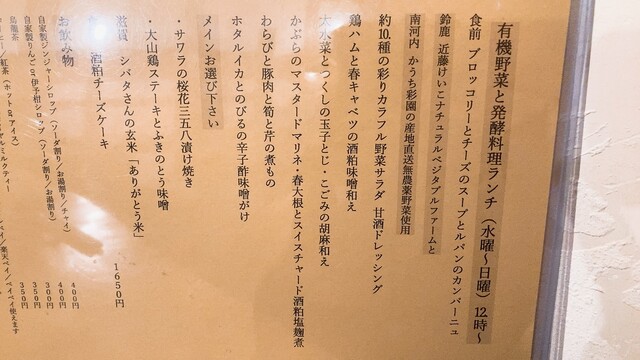 有機野菜と発酵料理ランチ（水曜～日曜）12時～
食前 ブロッコリーとチーズのスープとルバンのカンパーニュ
鈴鹿 近藤けいこナチュラルベジタブルファームと
南河内 かうち彩園の産地直送無農薬野菜使用
約10種の彩りカラフル野菜サラダ 甘酒ドレッシング
鶏ハムと春キャベツの酒粕味噌和え
大水菜とつくしの玉子とじ・こごみの胡麻和え
かぶらのマスタードマリネ・春大根とスイスチャード酒粕塩麹煮
わらびと豚肉と筍と芹の煮もの
ホタルイカとのびるの辛子酢味噌がけ
メインお選び下さい
・サワラの桜花三五八漬け焼き
・大山鶏ステーキとふきのとう味噌
滋賀 シバタさんの玄米「ありがとう米」
酒粕チーズケーキ
1650円
お飲み物
自家製ジンジャーシロップ（ソーダ割り/お湯割り/チャイ） 400円
自家製りんご or 伊予柑シロップ（ソーダ割り/お湯割り） 400円
烏龍茶 300円
紅茶（ホット or アイス） 350円
ロイヤルミルクティー 350円
ペイ/楽天ペイ/ペイペイ使えます